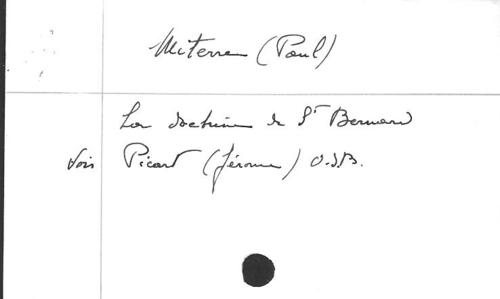 Miterre (Paul)
La doctrine de St Bernard
Voir Picard (Jérome) O.S.B.